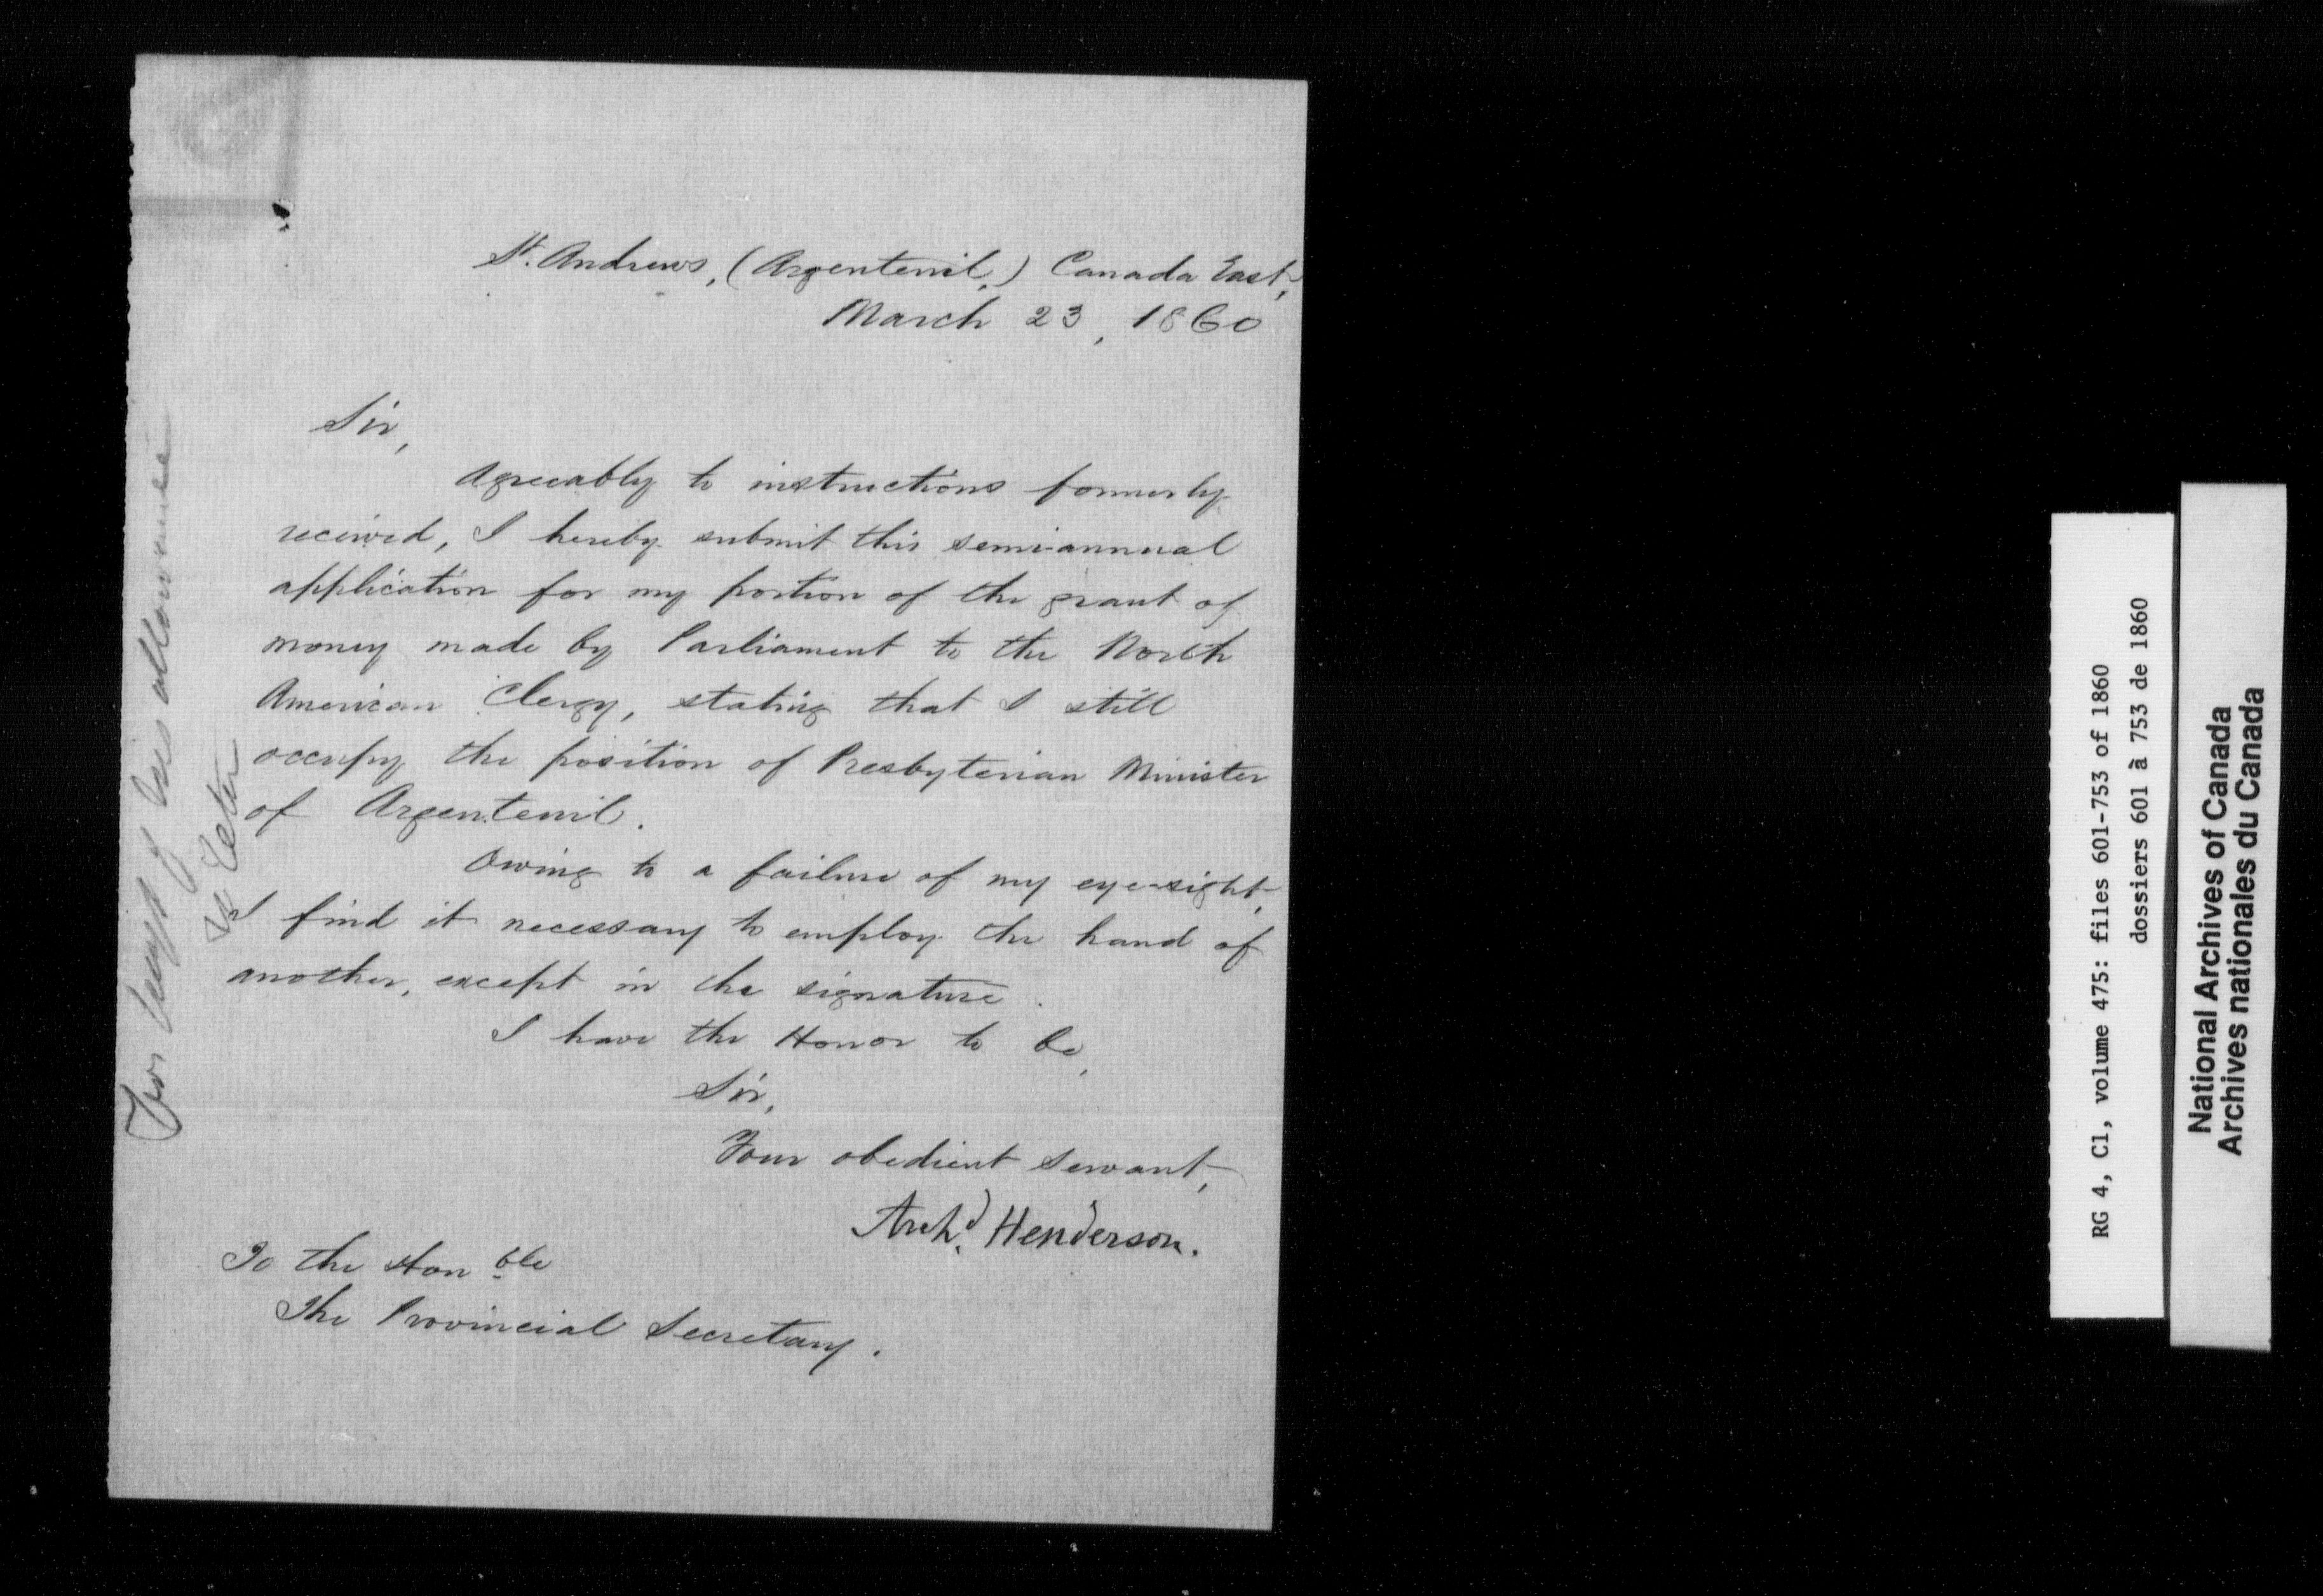 St. Andrews, (Argenteuil,) Canada East,
March 23, 1860
Sir,
Agreeably to instructions formerly
received, I hereby submit this semi-annual
application for my portion of the grant of
money made by Parliament to the North
American Clergy, stating that I still
occupy the position of Presbyterian Minister
of Argenteuil.
Owing to a failure of my eye-sight,
I find it necessary to employ the hand of
another, except in the signature.
I have the Honor to be,
Sir,
Your obedient servant,
Archd. Henderson.
To the Honble
The Provincial Secretary.
of his allowance
RG 4, C1, volume 475: files 601-753 of 1860
dossiers 601 à 753 de 1860
National Archives of Canada
Archives nationales du Canada